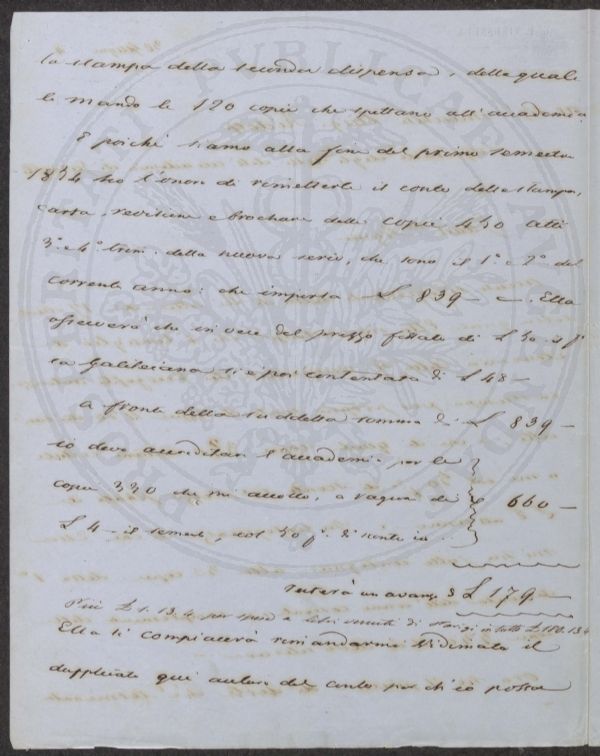 la stampa della seconda dispensa, delle quali
le mando le 120 copie che spettano all'accademia.
E poiché siamo alla fine del primo semestre
1834 ho l'onore di rimetterle il conto della stampa,
carta, revisione e brochure delle copie 450 atti
3.° e 4.° trim. della nuova serie, che sono il 1° e 2° del
corrente anno: che importa £ 839 — . Ella
osserverà che in vece del prezzo fissato di £ 50 il f.°
la Galileiana si è poi contentata di £ 48 —
A fronte della suddetta somma di £ 839 —
io devo accreditare l'accademia per le
copie 330 che mi accollo, a ragione di
£ 4 — il semestre, col 50 p.% di sconto in
660 —
resterà un avanzo di £ 179 —
Più £ 1. 13. 4 per spese a libri venuti di Parigi in tutto £ 180. 13. 4
Ella si compiacerà rimandarmi vidimata il
duplicato qui del conto per ch'io possa